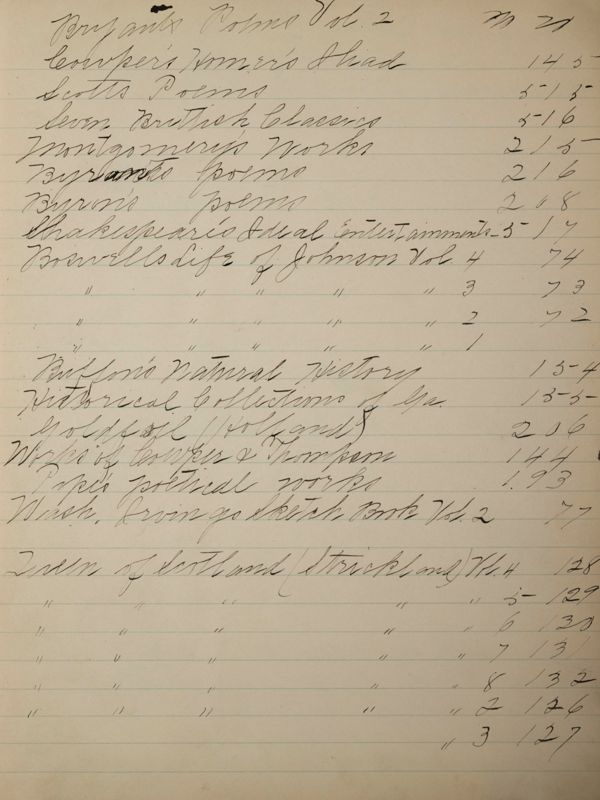 Bryants Poems Vol. 2
Cowper's Homer's Iliad 145
Scotts Poems 515
Seven British Classics 516
Montgomery's Works 215
Byrants poems 216
Byron's poems 208
Shakespeare's Ideal Entertainments 517
Boswells Life of Johnson Vol. 4 74
" " " " " 3 73
" " " " " 2 72
" " " " " 1
Buffon's Natural History 154
Historical Collections of Ga. 155
(Holland) 206
Works of Cowper & Thompson 144
Pope's poetical works 193
Wash. Irvings Sketch Book Vol. 2 77
Queen of Scotland (Strickland) Vol. 4 128
" " " " " 5 129
" " " " " 6 130
" " " " " 7 131
" " " " " 8 132
" " " " " 2 126
" 3 127